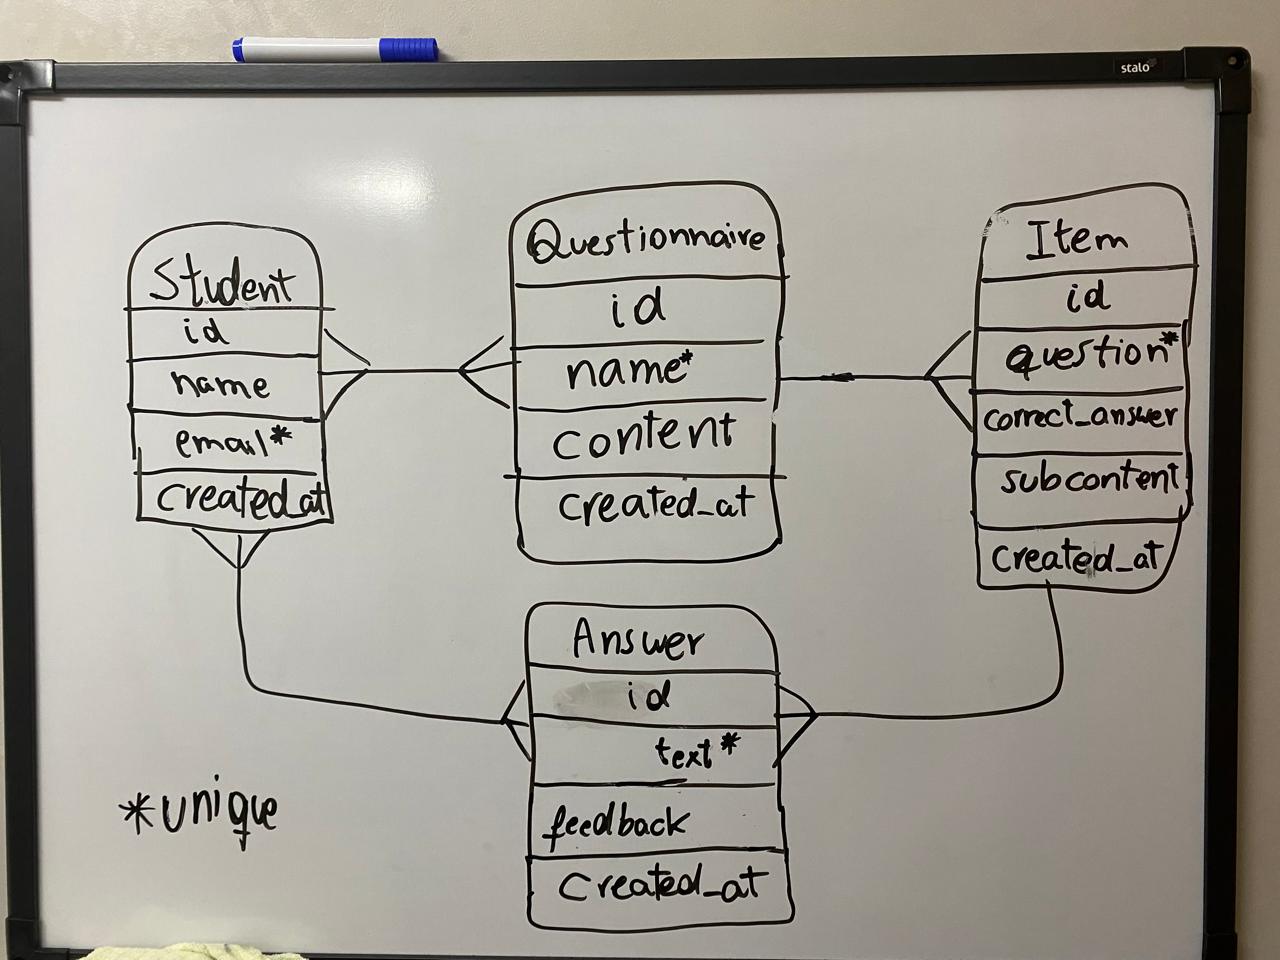 stalo
Student
id
name
email*
created_at
Questionnaire
id
name*
content
created_at
Item
id
question*
correct_answer
subcontent
created_at
Answer
id
text*
feedback
created_at
*unique